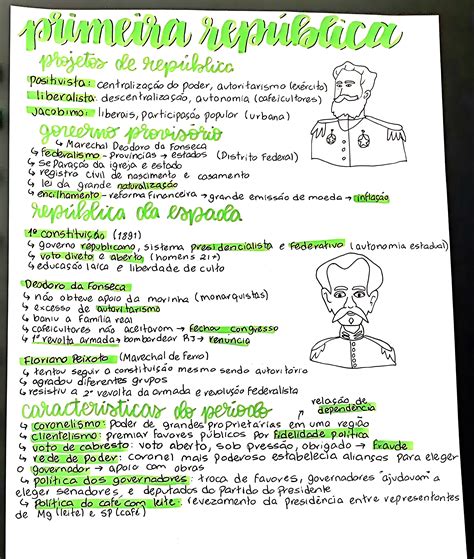 primeira república
projetos de república
positivista: centralização do poder, autoritarismo (exército)
liberalista: descentralização, autonomia (cafeicultores)
jacobino: liberais, participação popular (urbana)
governo provisório
↳ Marechal Deodoro da Fonseca
↳ federalismo - províncias → estados (Distrito Federal)
↳ separação da igreja e estado
↳ registro civil de nascimento e casamento
↳ lei da grande naturalização
↳ encilhamento - reforma financeira → grande emissão de moeda → inflação
república da espada
1ª constituição (1891)
↳ governo republicano, sistema presidencialista e federativo (autonomia estadual)
↳ voto direto e aberto (homens 21+)
↳ educação laica e liberdade de culto
Deodoro da Fonseca
↳ não obteve apoio da marinha (monarquistas)
↳ excesso de autoritarismo
↳ baniu a família real
↳ cafeicultores não aceitavam → fechou congresso
↳ 1ª revolta armada → bombardear RJ → renúncia
Floriano Peixoto (Marechal de Ferro)
↳ tentou seguir a constituição mesmo sendo autoritário
↳ agradou diferentes grupos
↳ resistiu a 2ª revolta da armada e revolução federalista
características do período
relação de dependência
↳ coronelismo: poder de grandes proprietários em uma região
↳ clientelismo: premiar favores públicos por fidelidade política
↳ voto de cabresto: voto aberto, sob pressão, obrigado → fraude
↳ rede de poder: coronel mais poderoso estabelecia alianças para eleger
o governador → apoio com obras
↳ política dos governadores: troca de favores, governadores "ajudavam" a
eleger senadores, e deputados do Partido do Presidente
↳ política do café com leite: revezamento da presidência entre representantes
de Mg (leite) e SP (café)